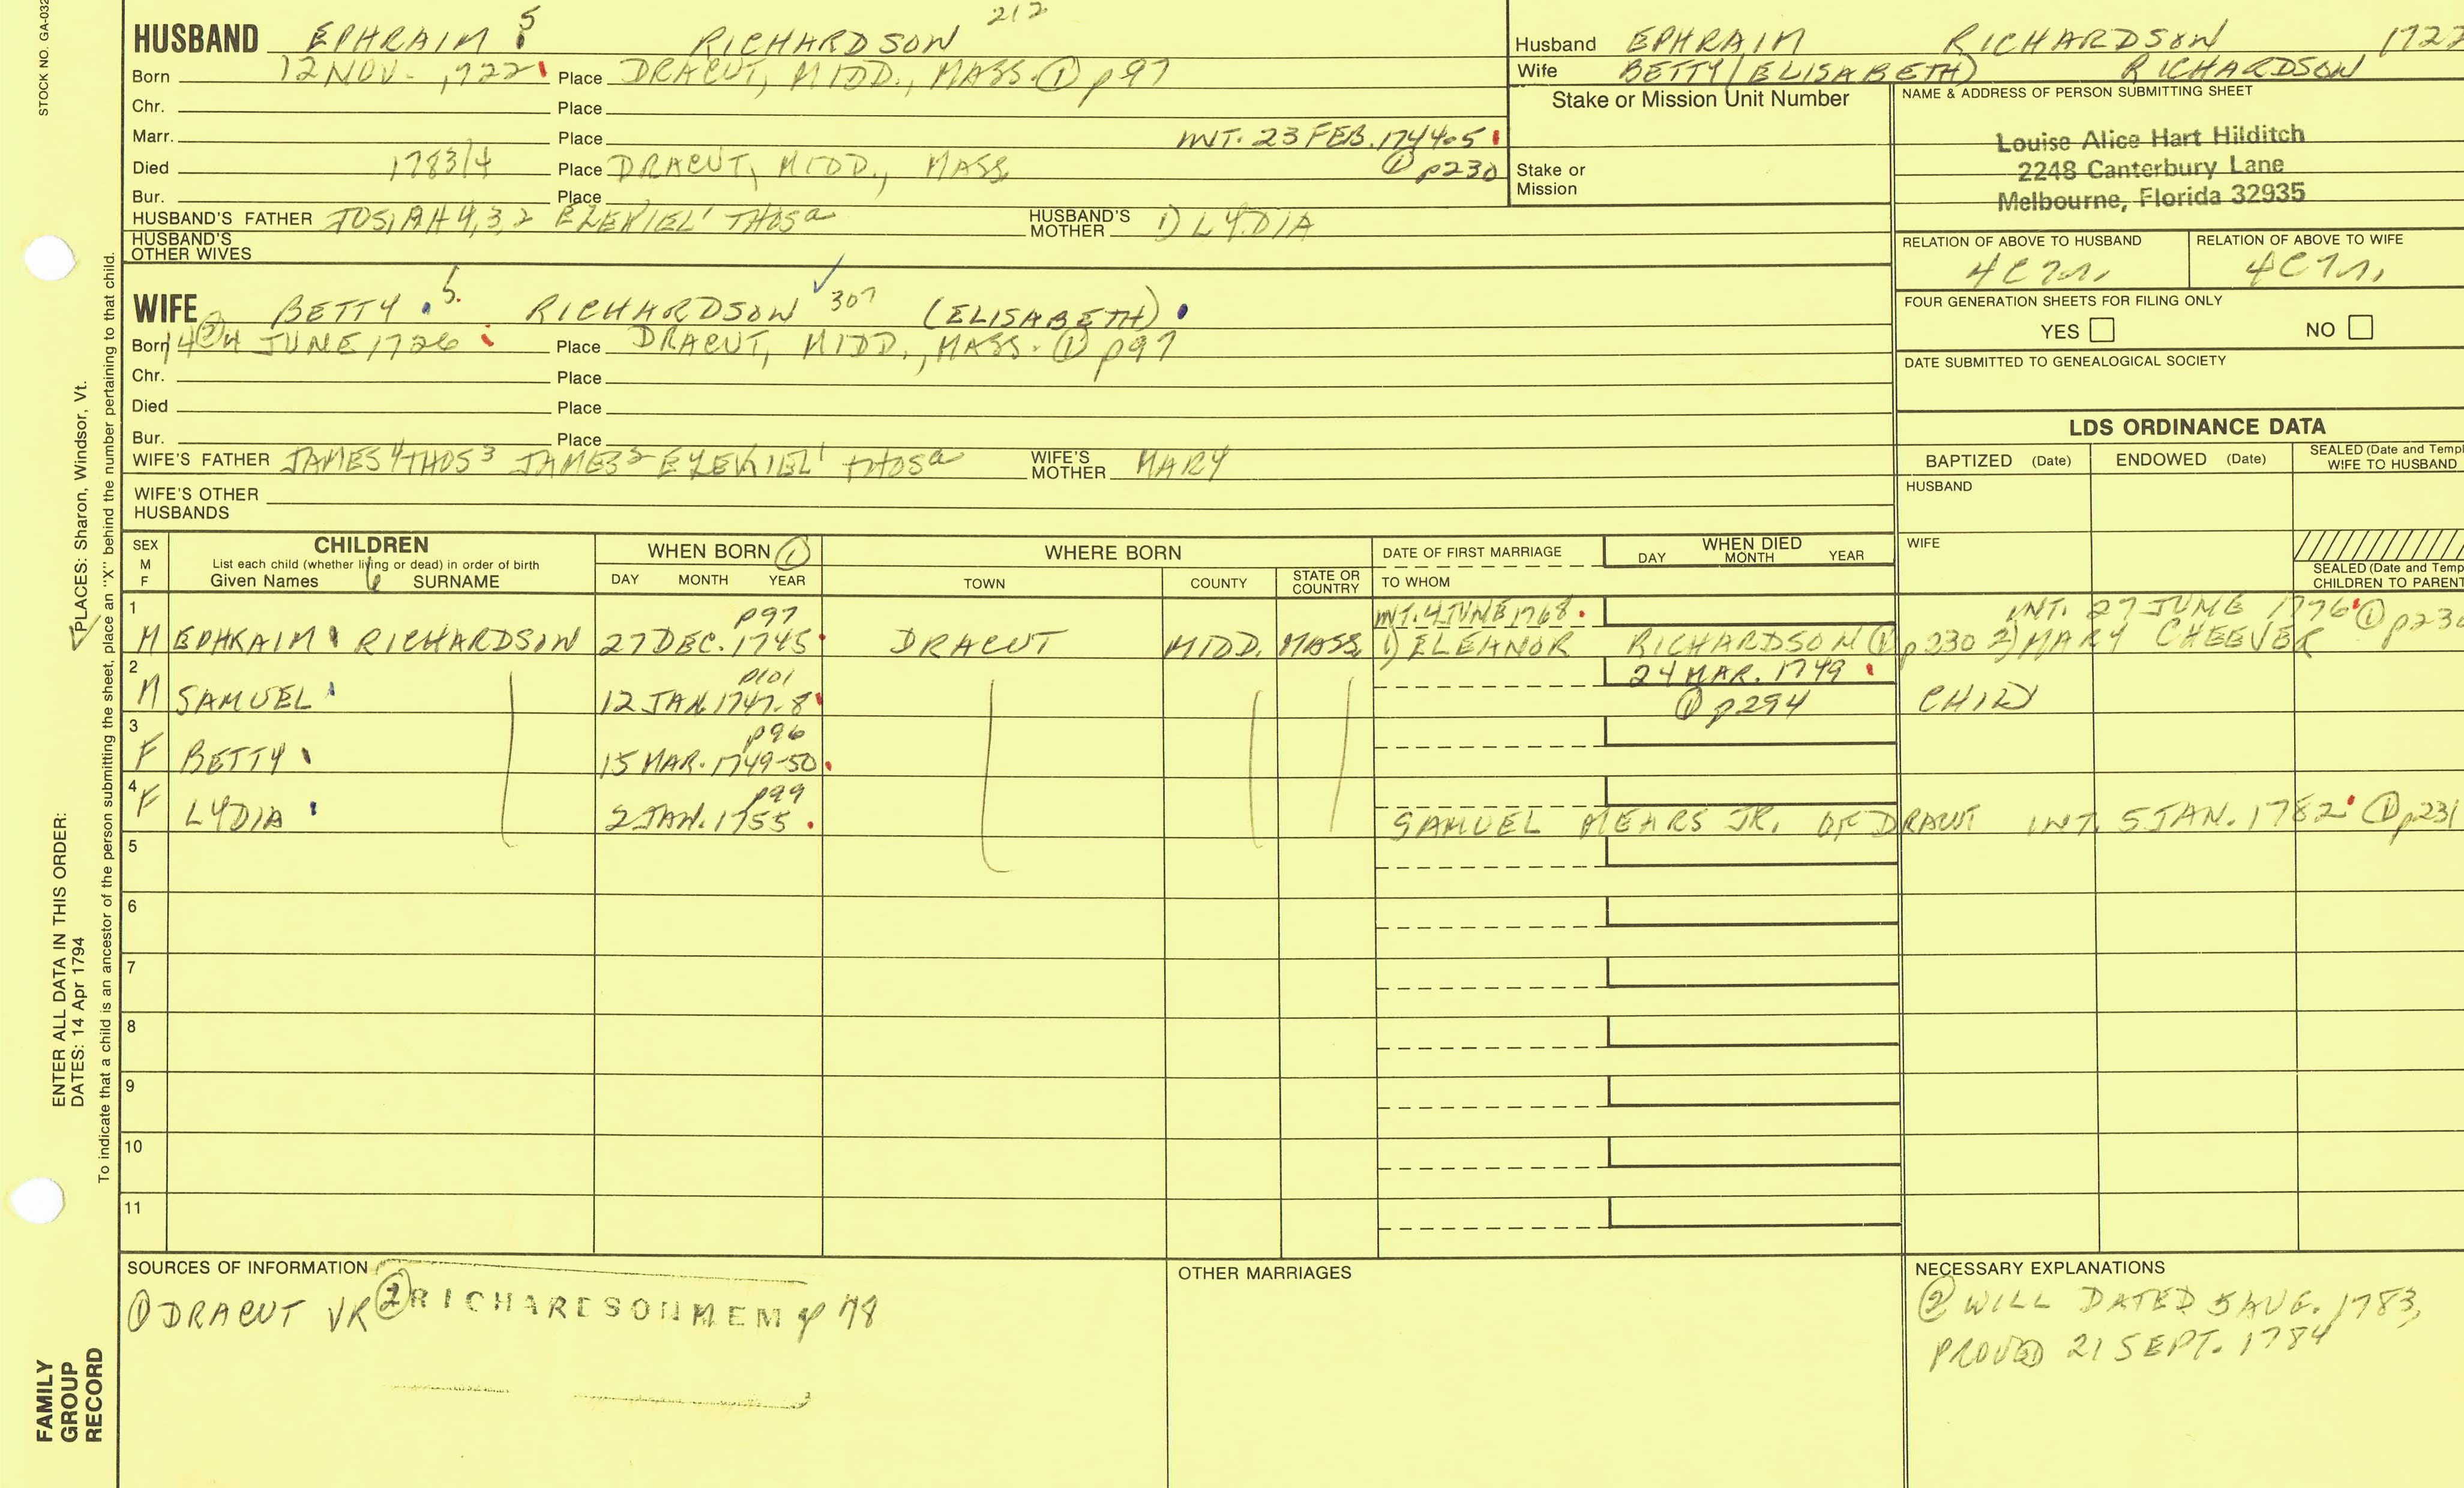 STOCK NO. GA-032
HUSBAND EPHRAIM 5 RICHARDSON 212
Born 12 NOV. 1722 Place DRACUT, MIDD., MASS. ① p97
Chr. Place
Marr. Place INT. 23 FEB. 1744-5
Died 1783/4 Place DRACUT, MIDD., MASS ① p230
Bur. Place
HUSBAND'S FATHER JOSIAH 4,3,2 EZEKIEL1 THOSa HUSBAND'S MOTHER 1) LYDIA
HUSBAND'S OTHER WIVES
WIFE BETTY 5. RICHARDSON 307 (ELISABETH)
Born 14 ② 4 JUNE 1726 Place DRACUT, MIDD., MASS. ① p97
Chr. Place
Died Place
Bur. Place
WIFE'S FATHER JAMES4 THOS3 JAMES2 EZEKIEL1 THOSa WIFE'S MOTHER MARY
WIFE'S OTHER HUSBANDS
Husband EPHRAIM RICHARDSON 1722
Wife BETTY (ELISABETH) RICHARDSON
Stake or Mission Unit Number
Stake or Mission
NAME & ADDRESS OF PERSON SUBMITTING SHEET
Louise Alice Hart Hilditch
2248 Canterbury Lane
Melbourne, Florida 32935
RELATION OF ABOVE TO HUSBAND RELATION OF ABOVE TO WIFE
FOUR GENERATION SHEETS FOR FILING ONLY
YES NO
DATE SUBMITTED TO GENEALOGICAL SOCIETY
LDS ORDINANCE DATA
BAPTIZED (Date) ENDOWED (Date) SEALED (Date and Templ
WIFE TO HUSBAND
HUSBAND
WIFE
SEALED (Date and Temp
CHILDREN TO PARENT
SEX M F
CHILDREN
List each child (whether living or dead) in order of birth
Given Names SURNAME
WHEN BORN ①
DAY MONTH YEAR
WHERE BORN
TOWN COUNTY STATE OR COUNTRY
DATE OF FIRST MARRIAGE
TO WHOM
WHEN DIED
DAY MONTH YEAR
1 p97 INT. 4 JUNE 1768. INT. 27 JUNE 1776 ① p230
M EPHRAIM RICHARDSON 27 DEC. 1745 DRACUT MIDD. MASS 1) ELEANOR RICHARDSON ① p230 2) MARY CHEEVER
2 p101 24 MAR. 1749
M SAMUEL 12 JAN. 1747-8 ① p294 CHILD
3 p96
F BETTY 15 MAR. 1749-50
4 p99
F LYDIA 2 JAN. 1755 SAMUEL MEARS JR. OF DRACUT INT. 5 JAN. 1782 ① p231
5
6
7
8
9
10
11
SOURCES OF INFORMATION
① DRACUT VR ② RICHARDSON MEM p 78
OTHER MARRIAGES
NECESSARY EXPLANATIONS
② WILL DATED 5 AUG. 1783,
PROVED 21 SEPT. 1784
PLACES: Sharon, Windsor, Vt.
ENTER ALL DATA IN THIS ORDER:
DATES: 14 Apr 1794
To indicate that a child is an ancestor of the person submitting the sheet, place an "X" behind the number pertaining to that child.
FAMILY
GROUP
RECORD